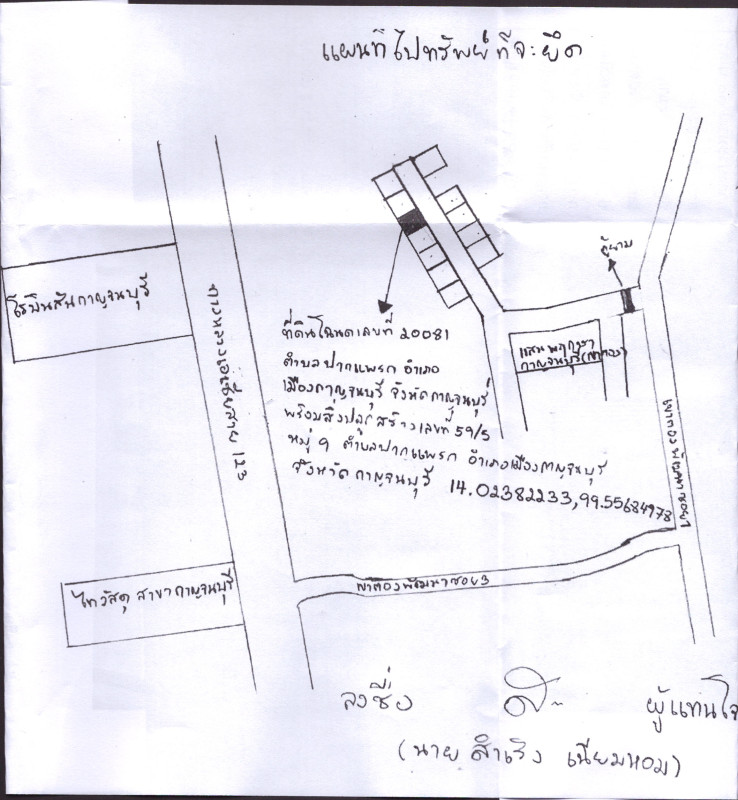 แผนที่ไปทรัพย์ที่จะยึด
ตู้ยาม
โรบินสันกาญจนบุรี
ที่ดินโฉนดเลขที่ 20081
ตำบลปากแพรก อำเภอ
เมืองกาญจนบุรี จังหวัดกาญจนบุรี
พร้อมสิ่งปลูกสร้างเลขที่ 59/5
หมู่ 9 ตำบลปากแพรก อำเภอเมืองกาญจนบุรี
จังหวัดกาญจนบุรี 14.02382233,99.55684978
แสนพฤกษา
กาญจนบุรี(เขาตอง)
ทางหลวงเอเชียสาย 123
ไทวัสดุ สาขากาญจนบุรี
เขาตองพัฒนาซอย3
ลงชื่อ ผู้แทนโจ
(นาย สำเริง เนียมหอม)